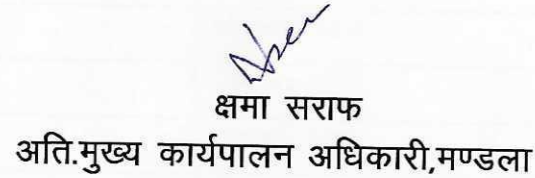 क्षमा सराफ
अति.मुख्य कार्यपालन अधिकारी,मण्डला